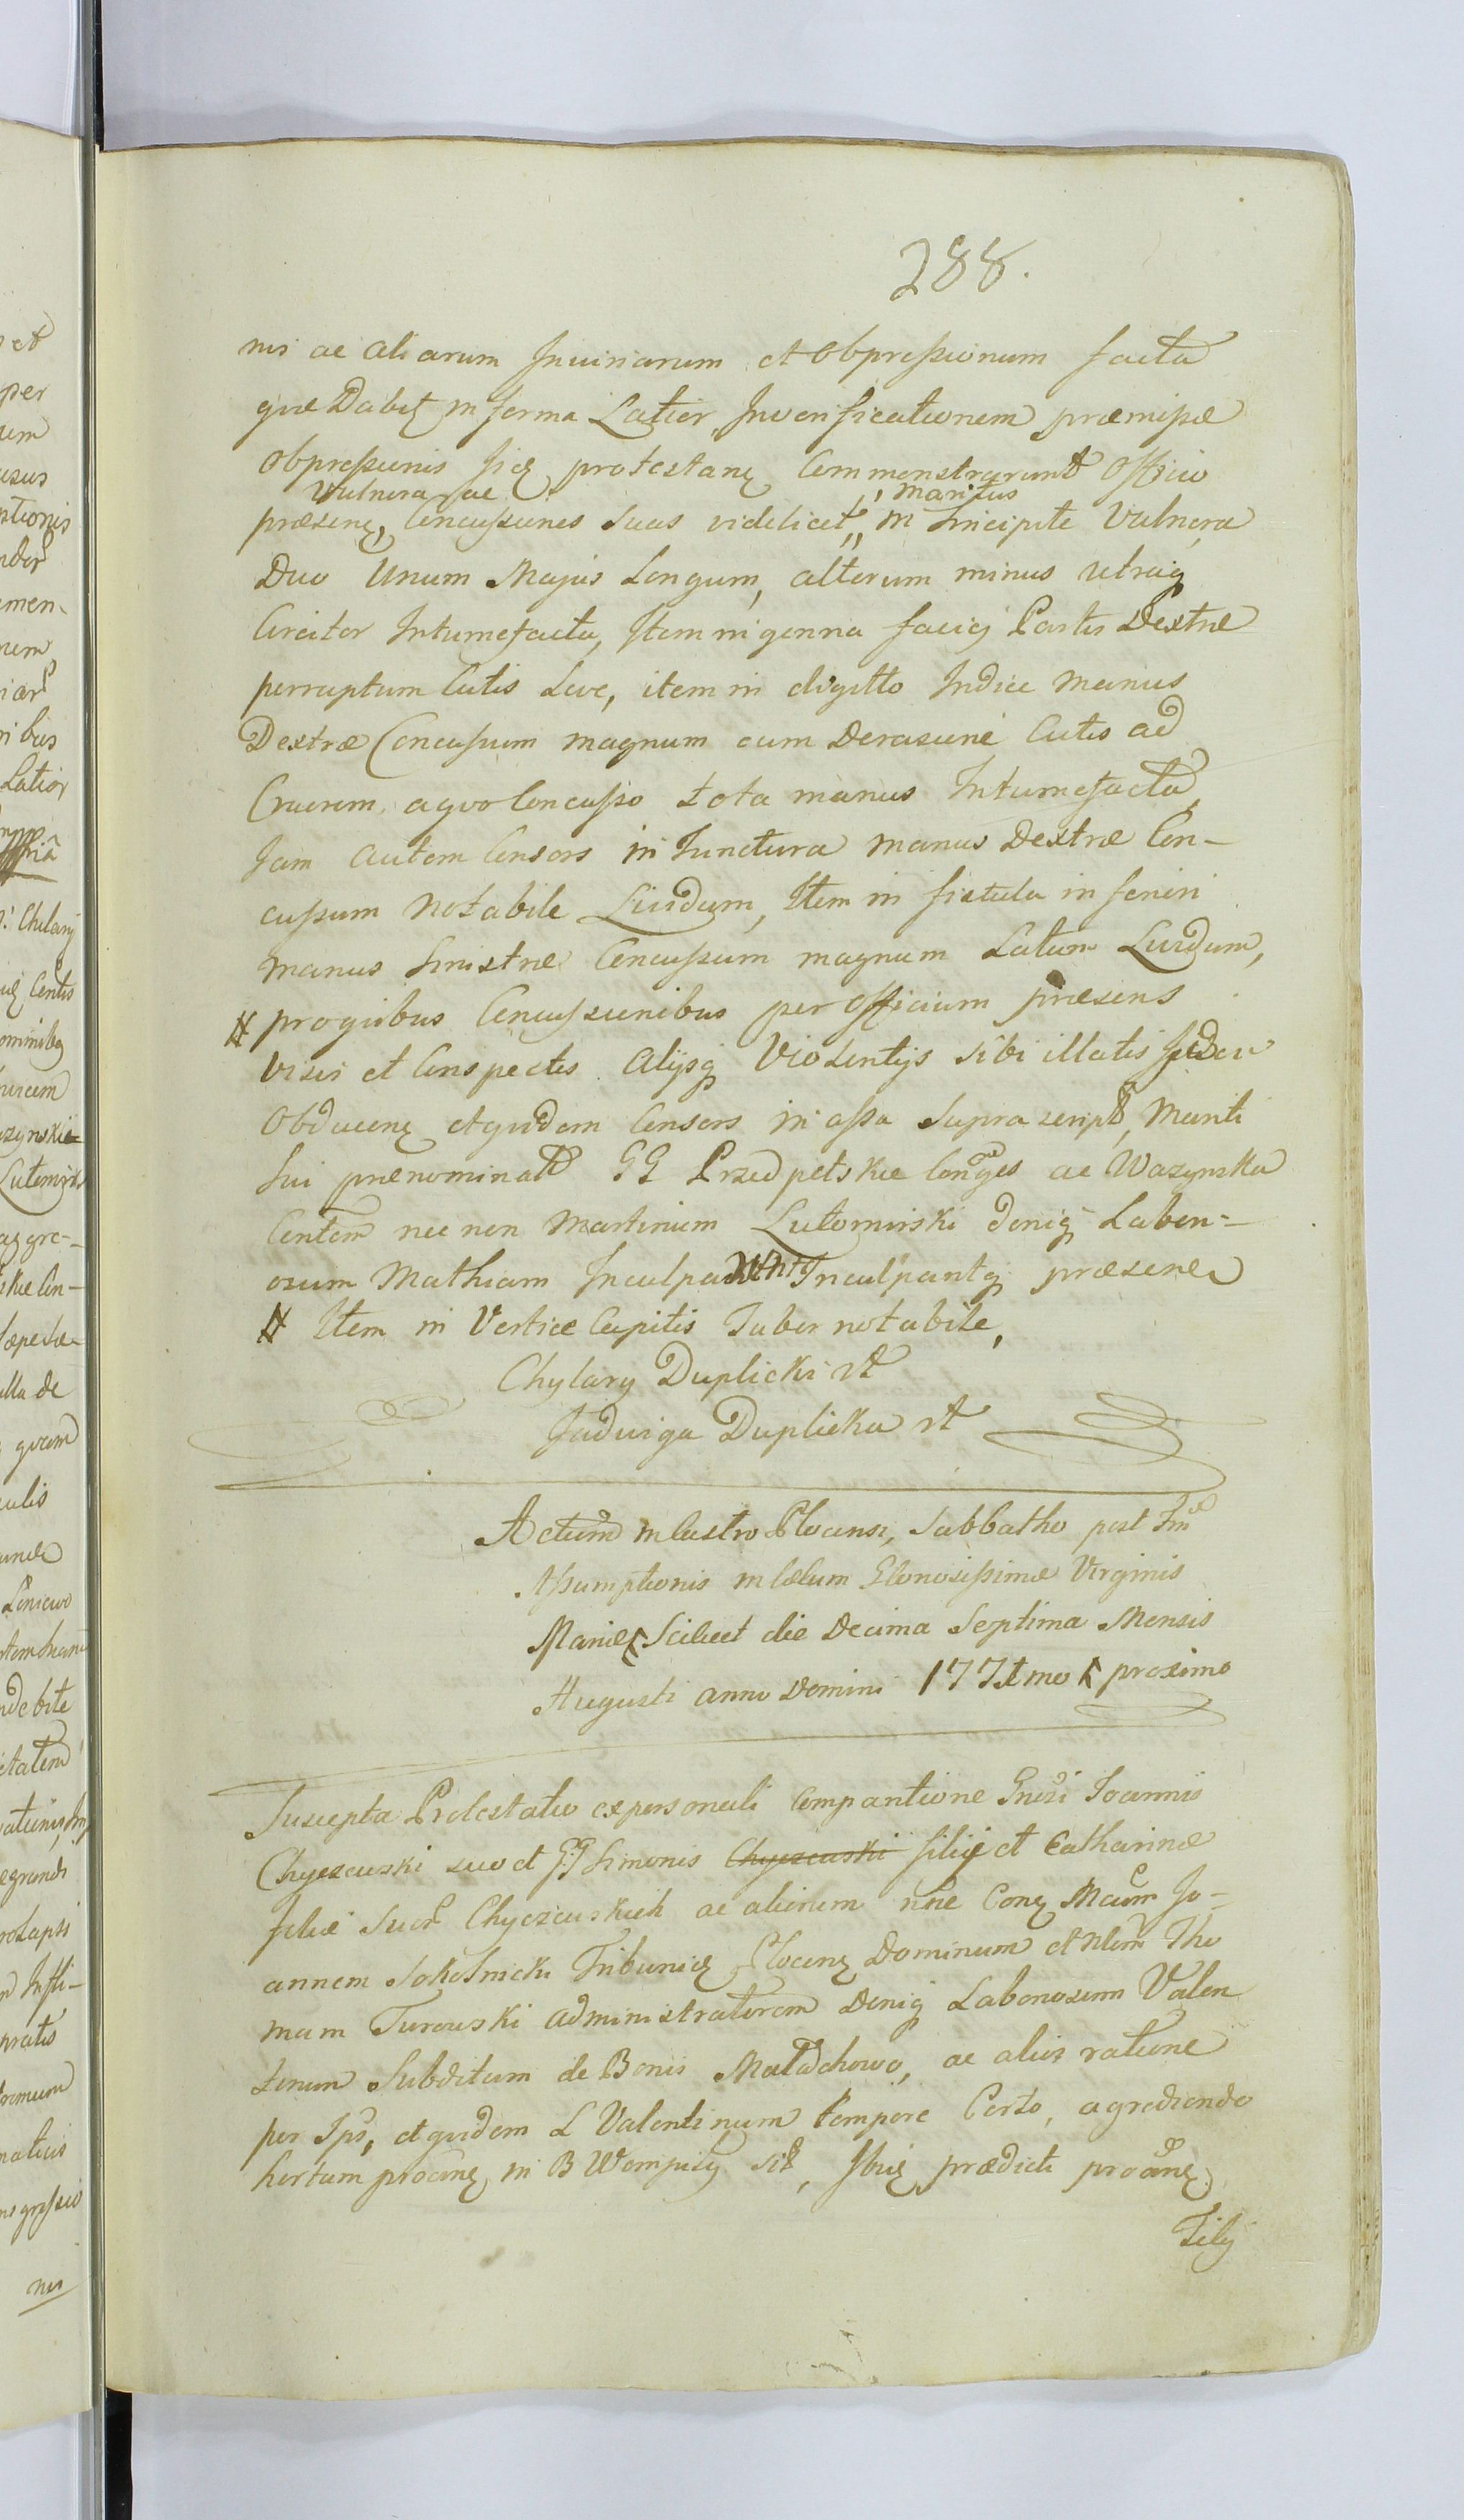 288.
nis ac aliarum Iniuriarum et Obpressionum facta
que Dabit in forma Latior, Inverificationem præmissæ
Obpressionis sicq protestanq Commonstrarunt Officio
Vulnera ac maritus
præsenq, Concussiones suas videlicet,, in Sincipite Vulnera
Duo Unum Majus Longum, alterum minus utraq
Circiter Intumefacta, Item in genna faciej Partis Dextræ
perruptum Cutis Leve, item in digitto Indice manus
Dextræ Concussum magnum cum Derasione Cutis ad
Cruorem, a quo Concusso tota manus Intumefacta,
Jam autem Consors in Junctura manus Dextræ Con-
cussum notabile Lividum, Item in fistula inferiori
manus sinistræ Concussum magnum Latum Lividum,
# pro quibus Concussionibus per Officium præsens
visis et Conspectis Alijsq Violentijs sibi illatis
Obducenq et quidem Consors in assa supra script, Mariti
sui prænominat GG Przedpełskie Conges ac Wazynska
Centem nec non Martinum Lutomirski deniq Labori-
osum Mathiam Inculpantq præsene
# Item in Vertice Capitis Tuber notabile,
Chylary Duplicki rt
Jadwiga Duplicka rt
Actum in Castro Plocensi, Sabbatho post Fm
Assumptionis in Cælum Gloriosissimæ Virginis
Mariæ, Scilicet die Decima Septima Mensis
Augusti anno Domini 177tmo proximo
Suscepta Protestatio ex personali Comparitione Gnosi Joannis
Chyczewski suo et GG Simonis Chyczewski filij et Catharinæ
filiæ suor Chyczewskich ac aliorum nne Conq Mcum Jo-
annem Sokolnicki Tribuniq Plocenq Dominum et Nlem Tho
mam Turowski administratorem Deniq Laboriosum Valen
tinum Subditum de Bonis Małachowo, ac alios ratione
per Ips, et quidem L Valentinum tempore Certo, agrediendo
hortum procinq in B Wempiły sit, Ibiq prædicti procinq
Filij